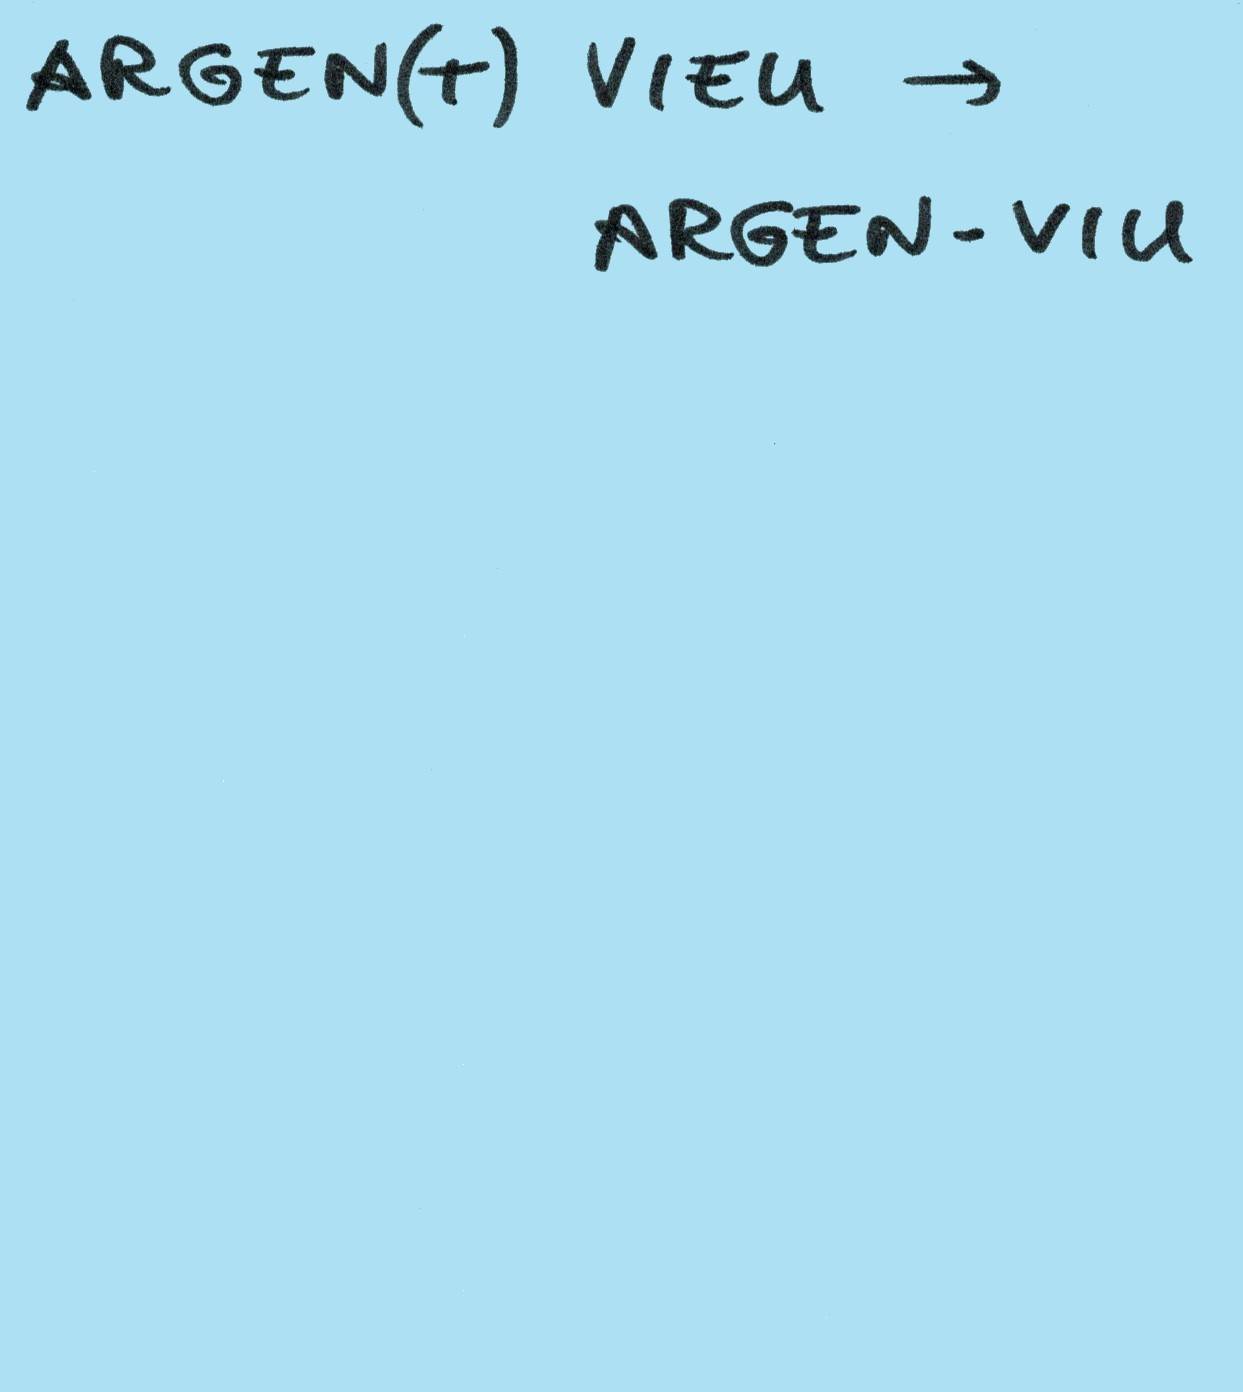 ARGEN(T) VIEU →
ARGEN-VIU